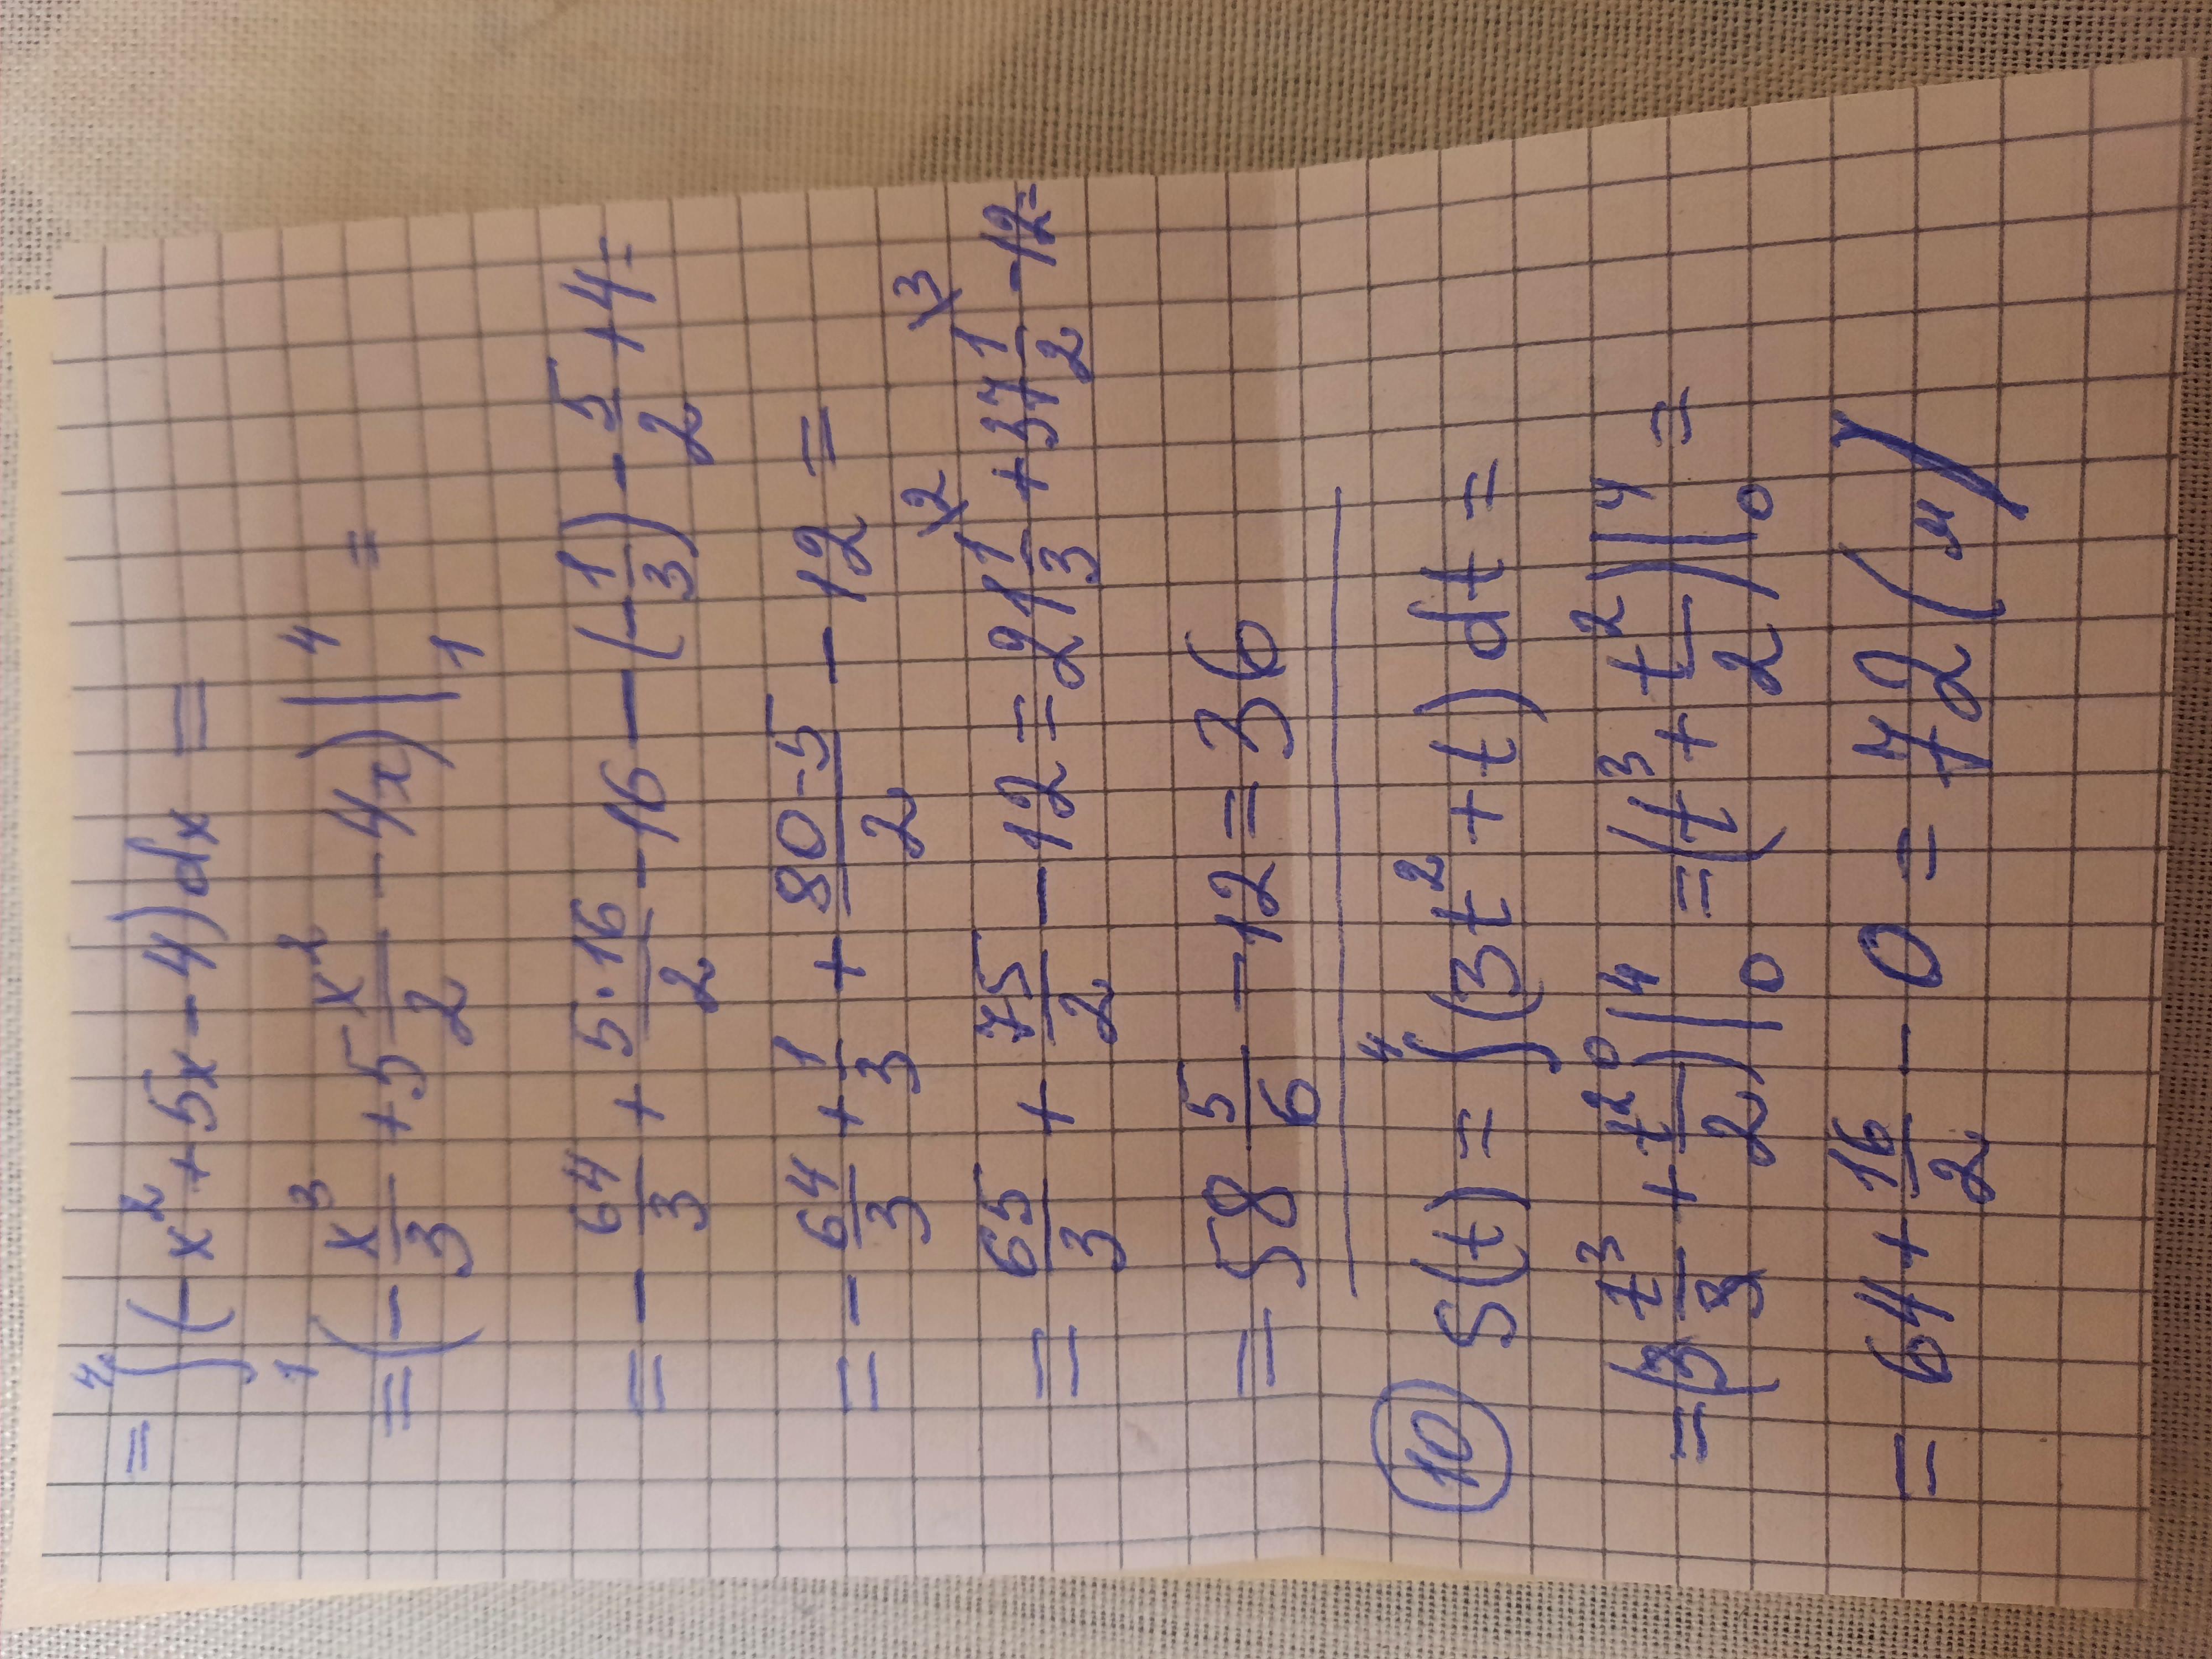 = ∫₁⁴ (-x² + 5x - 4) dx =
= (- x³/3 + 5 x²/2 - 4x) |₁⁴ =
= - 64/3 + 5·16/2 - 16 - (-1/3) - 5/2 + 4 =
= - 64/3 + 1/3 + 80-5/2 - 12 =
= 65/3 + 75/2 - 12 = 21 1/3 \2 + 37 1/2 \3 - 12 =
= 58 5/6 - 12 = 36
(10) S(t) = ∫₀⁴ (3t² + t) dt =
= (3 t³/3 + t²/2) |₀⁴ = (t³ + t²/2) |₀⁴ =
= 64 + 16/2 - 0 = 72 (м)